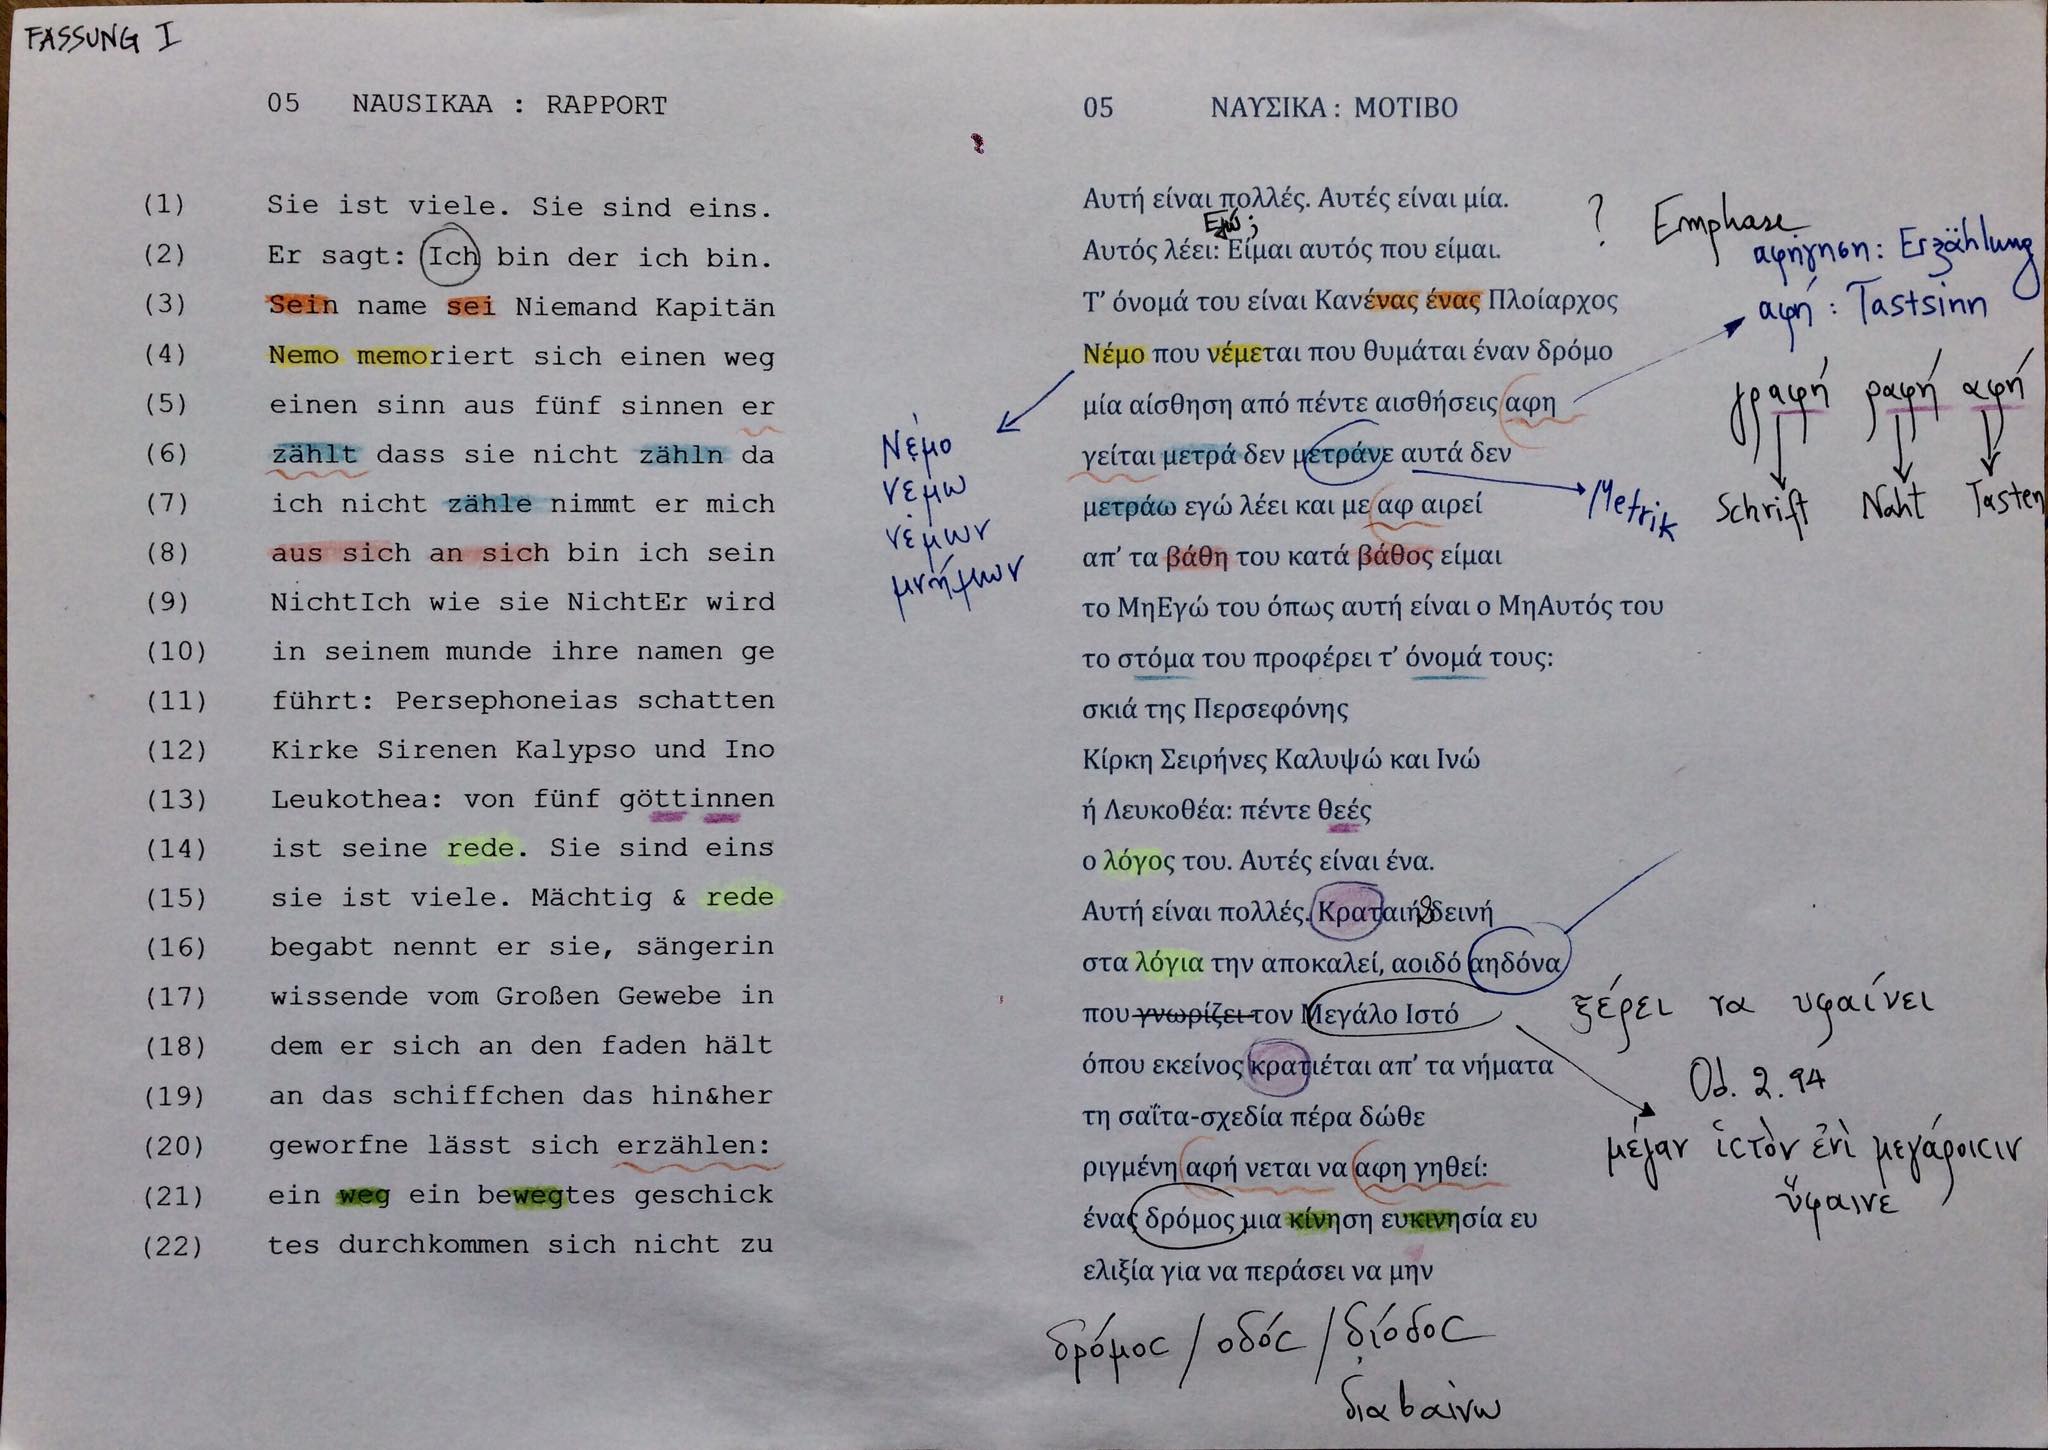 FASSUNG I
05 NAUSIKAA : RAPPORT
(1) Sie ist viele. Sie sind eins.
(2) Er sagt: Ich bin der ich bin.
(3) Sein name sei Niemand Kapitän
(4) Nemo memoriert sich einen weg
(5) einen sinn aus fünf sinnen er
(6) zählt dass sie nicht zähln da
(7) ich nicht zähle nimmt er mich
(8) aus sich an sich bin ich sein
(9) NichtIch wie sie NichtEr wird
(10) in seinem munde ihre namen ge
(11) führt: Persephoneias schatten
(12) Kirke Sirenen Kalypso und Ino
(13) Leukothea: von fünf göttinnen
(14) ist seine rede. Sie sind eins
(15) sie ist viele. Mächtig & rede
(16) begabt nennt er sie, sängerin
(17) wissende vom Großen Gewebe in
(18) dem er sich an den faden hält
(19) an das schiffchen das hin&her
(20) geworfne lässt sich erzählen:
(21) ein weg ein bewegtes geschick
(22) tes durchkommen sich nicht zu
Νέμο
νέμω
νέμων
μνήμων
05 ΝΑΥΣΙΚΑ : ΜΟΤΙΒΟ
Αυτή είναι πολλές. Αυτές είναι μία.
Εγώ;
Αυτός λέει: Είμαι αυτός που είμαι.
Τ’ όνομά του είναι Κανένας ένας Πλοίαρχος
Νέμο που νέμεται που θυμάται έναν δρόμο
μία αίσθηση από πέντε αισθήσεις αφη
γείται μετρά δεν μετράνε αυτά δεν
μετράω εγώ λέει και με αφ αιρεί
απ’ τα βάθη του κατά βάθος είμαι
το ΜηΕγώ του όπως αυτή είναι ο ΜηΑυτός του
το στόμα του προφέρει τ’ όνομά τους:
σκιά της Περσεφόνης
Κίρκη Σειρήνες Καλυψώ και Ινώ
ή Λευκοθέα: πέντε θεές
ο λόγος του. Αυτές είναι ένα.
Αυτή είναι πολλές. Κραταιή & δεινή
στα λόγια την αποκαλεί, αοιδό αηδόνα
που γνωρίζει τον Μεγάλο Ιστό
όπου εκείνος κρατιέται απ’ τα νήματα
τη σαΐτα-σχεδία πέρα δώθε
ριγμένη αφή νεται να αφη γηθεί:
ένας δρόμος μια κίνηση ευκινησία ευ
ελιξία για να περάσει να μην
δρόμος / οδός / δίοδος
διαβαίνω
? Emphase
αφήγηση: Erzählung
αφή : Tastsinn
γραφή ραφή αφή
Schrift Naht Tasten
Metrik
ξέρει να υφαίνει
Od. 2.94
μέγαν ἱστὸν ἐνὶ μεγάροισιν
ὕφαινε